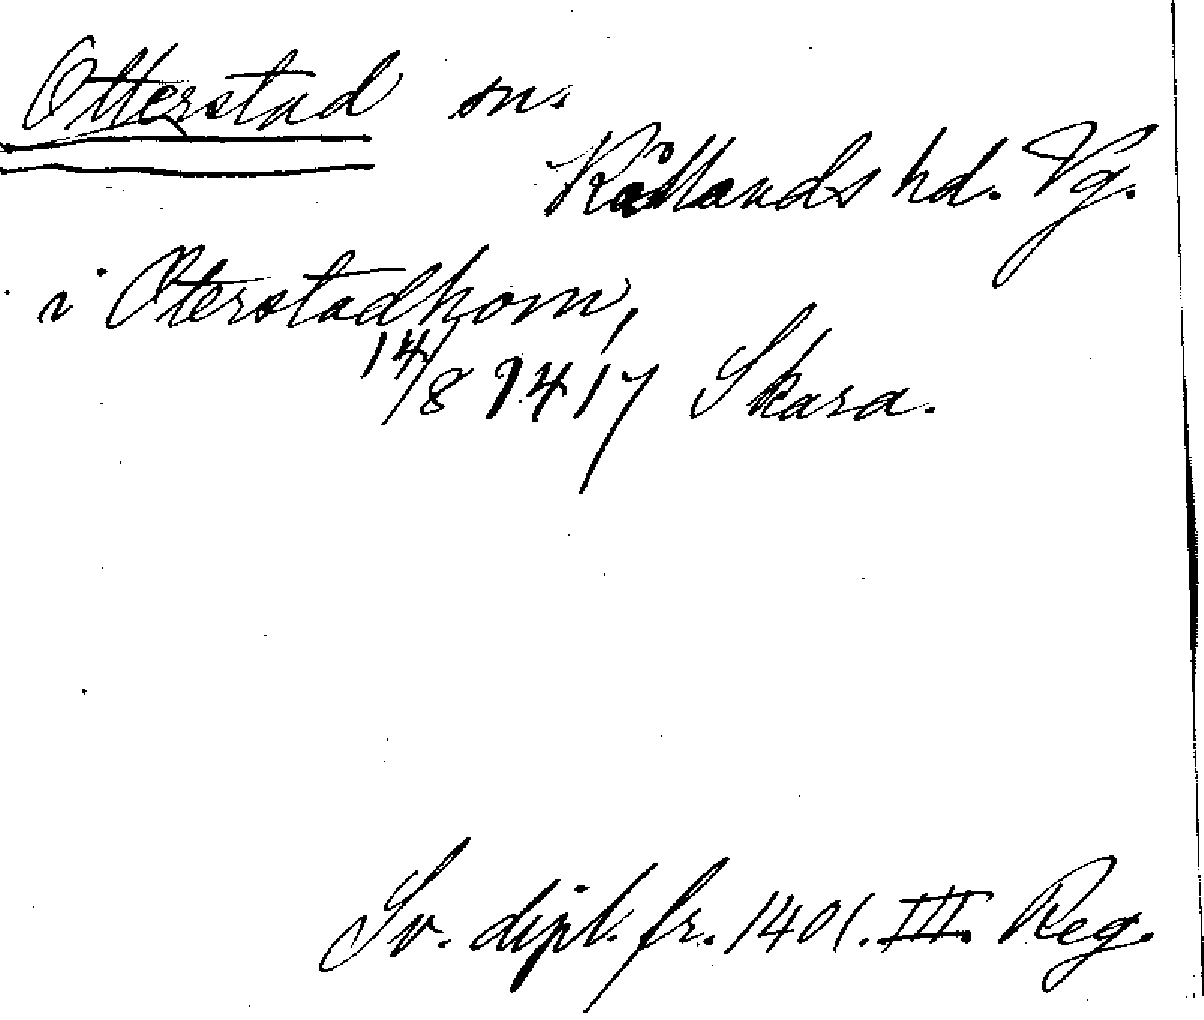 Otterstad sn.
Kållands hd. Vg.
i Oterstadhom,
14/8 1417 Skara.
Sv. dipl. fr. 1401. III. Reg.